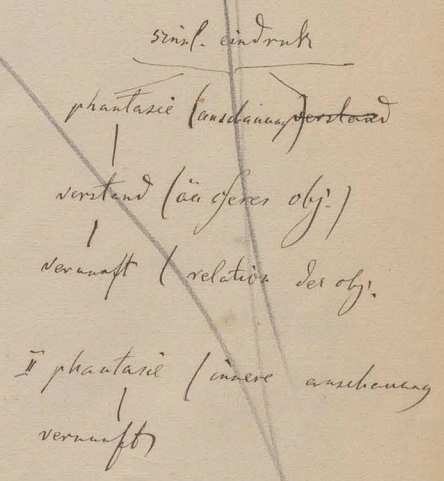 sinnl. eindruk
phantasie (anschauung) verstand
verstand (äußeres obj.)
vernunft (relation des obj.
II phantasie (innere anschauung
vernunft)